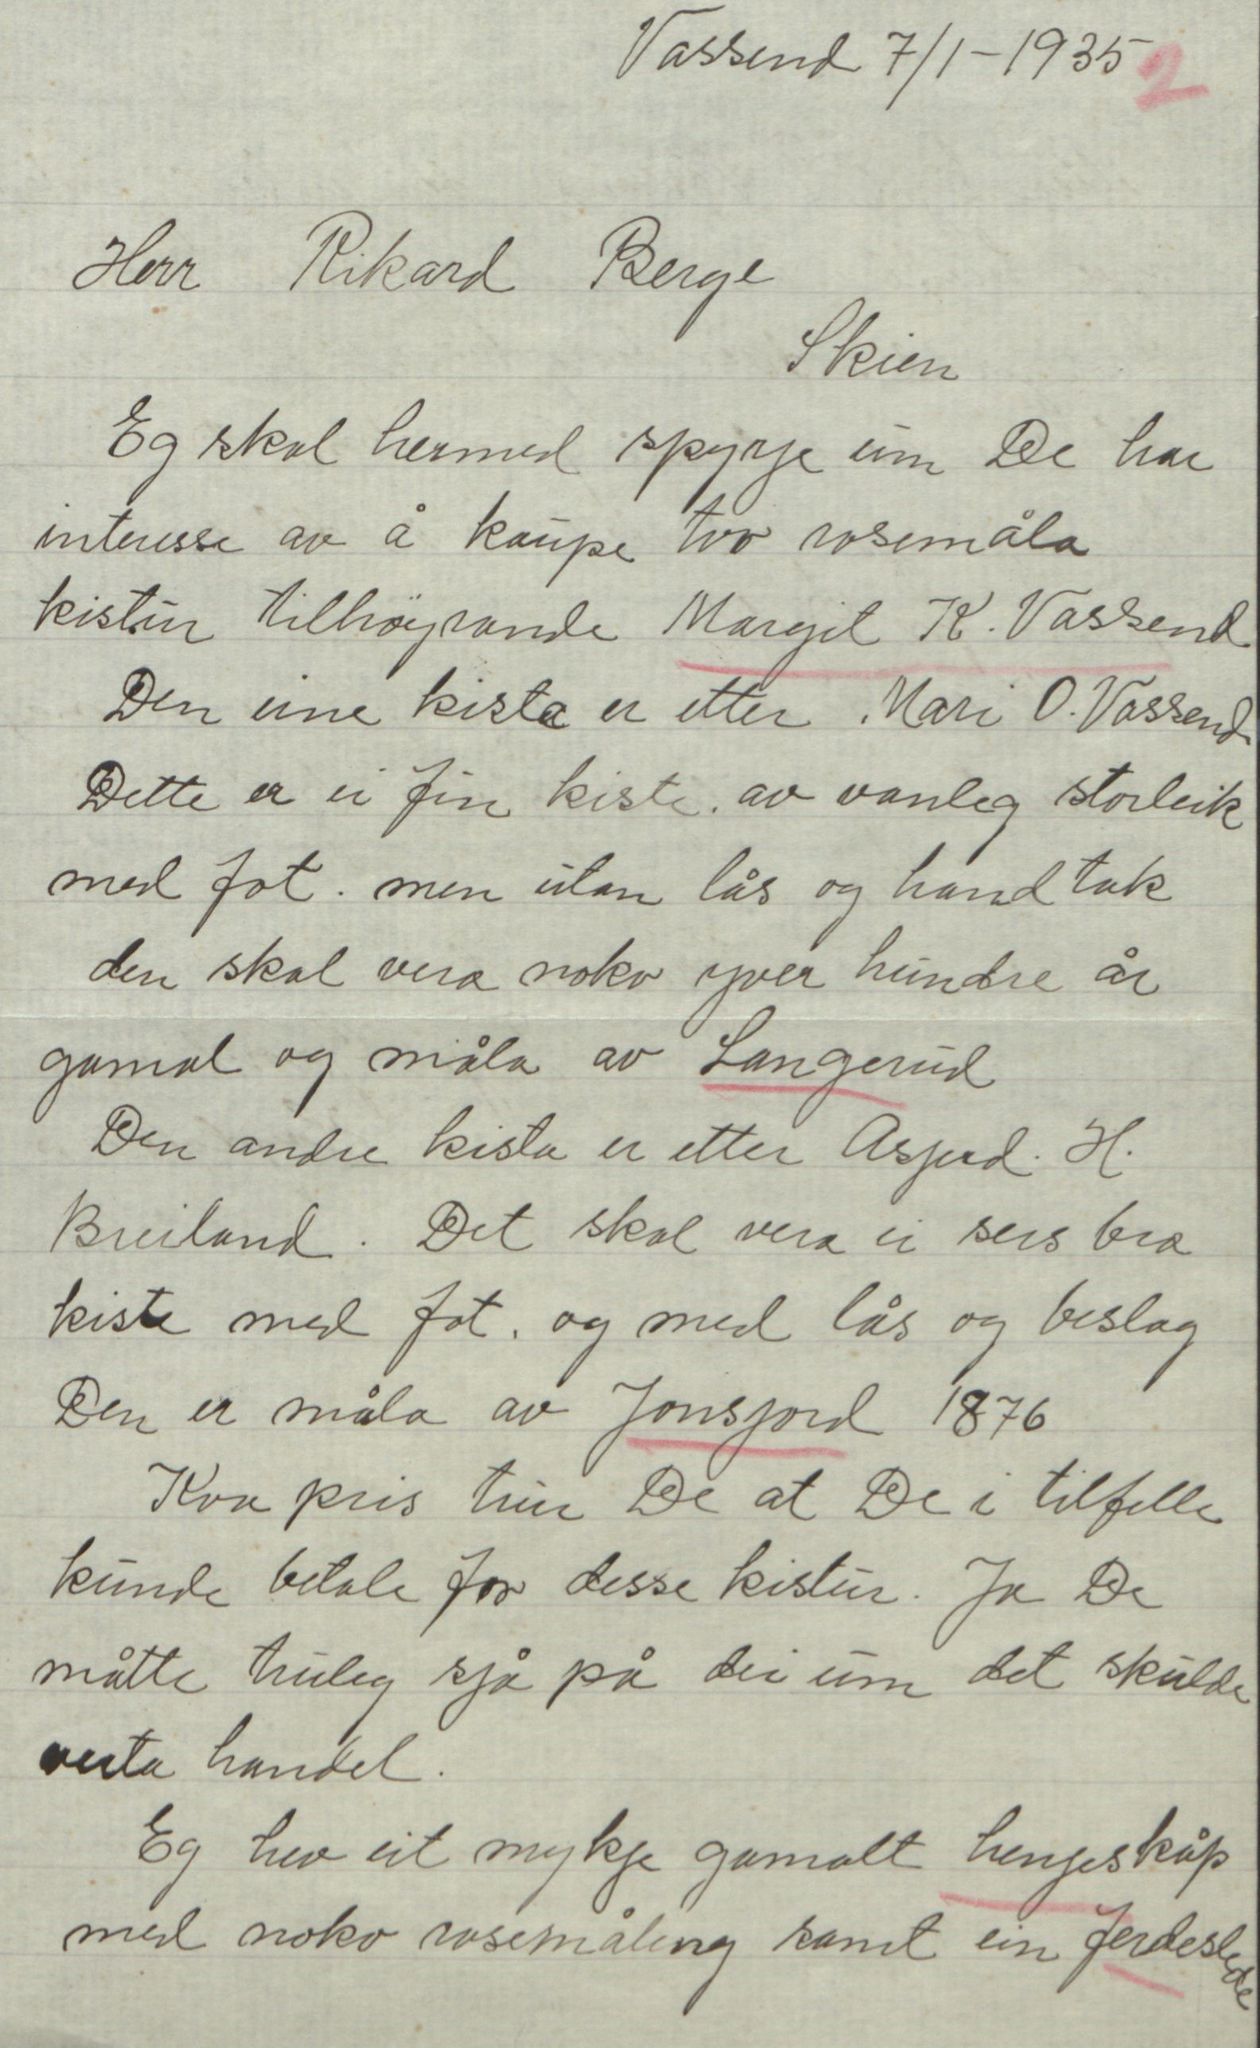 Vassend 7/1-1935
2
Herr Rikard Berge
Skien
Eg skal hermed spyrje um De har
interesse av å kaupe tvo rosemåla
kistur tilhøyrande Margit K. Vassend
Den eine kista er etter Mari O. Vassend.
Dette er ei fin kiste. av vanleg storleik
med fot. men utan lås og handtak
den skal vera noko yver hundre år
gamal og måla av Langerud
Den andre kista er etter Asjerd. H.
Breiland. Det skal vera ei sers bra
kiste med fot. og med lås og beslag
Den er måla av Jonsjord 1876
Kva pris trur De at De i tilfelle
kunde betale for desse kistur. Ja De
måtte truleg sjå på dei um det skulde
verta handel.
Eg hev eit mykje gamalt hengeskåp
med noko rosemåling samt ein ferdeslede